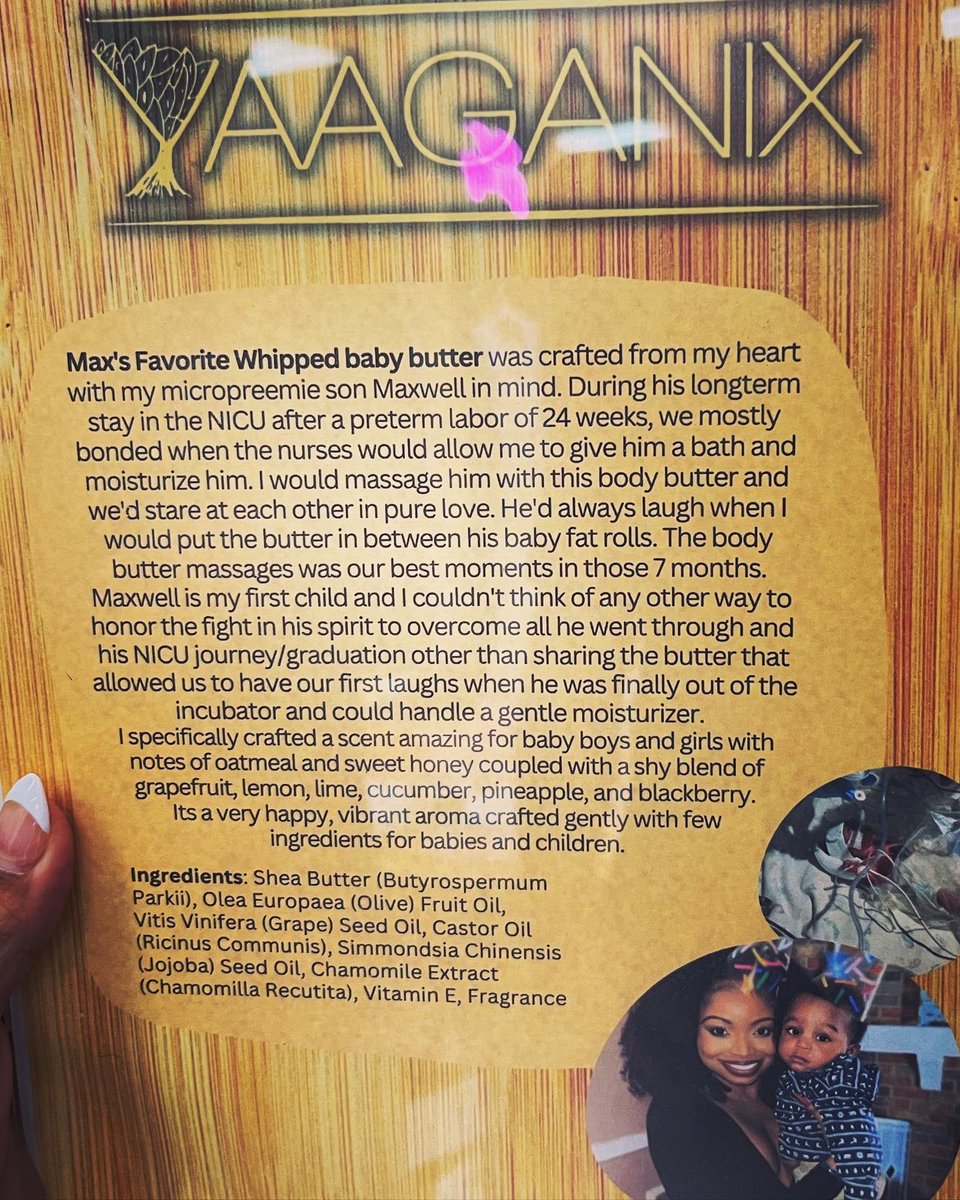 YAAGANIX
Max's Favorite Whipped baby butter was crafted from my heart
with my micropreemie son Maxwell in mind. During his longterm
stay in the NICU after a preterm labor of 24 weeks, we mostly
bonded when the nurses would allow me to give him a bath and
moisturize him. I would massage him with this body butter and
we'd stare at each other in pure love. He'd always laugh when I
would put the butter in between his baby fat rolls. The body
butter massages was our best moments in those 7 months.
Maxwell is my first child and I couldn't think of any other way to
honor the fight in his spirit to overcome all he went through and
his NICU journey/graduation other than sharing the butter that
allowed us to have our first laughs when he was finally out of the
incubator and could handle a gentle moisturizer.
I specifically crafted a scent amazing for baby boys and girls with
notes of oatmeal and sweet honey coupled with a shy blend of
grapefruit, lemon, lime, cucumber, pineapple, and blackberry.
Its a very happy, vibrant aroma crafted gently with few
ingredients for babies and children.
Ingredients: Shea Butter (Butyrospermum
Parkii), Olea Europaea (Olive) Fruit Oil,
Vitis Vinifera (Grape) Seed Oil, Castor Oil
(Ricinus Communis), Simmondsia Chinensis
(Jojoba) Seed Oil, Chamomile Extract
(Chamomilla Recutita), Vitamin E, Fragrance